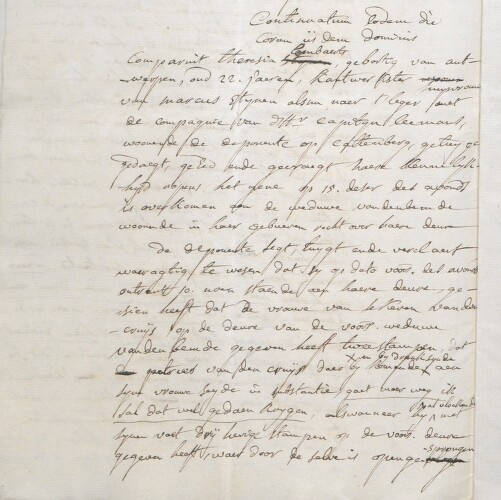 Continuatum Eodem die
Coram iisdem dominis
Comparuit theresia Lombaerts, geboortig van ant-
-werpen, oud 22. jaeren, kantwerkster huysvrouw
van marcus Stijnen alsnu naer t' leger met
de compagnie van d'Hr. Capiteyn Leemans,
woonende de deponente op Cattenberg, getuyge
gedaegt, ge'Eed ende gevraegt haere kennelyk-
-heyd nopens het gene op 15. deser des avonds
is overkomen aen de weduwe vandenbemde
woonende in haer gebueren recht over haere deure
De deponente segt, tuygt ende verclaert
waeragtig te wesen dat sy op dato voors. des avonds
ontrent 10. uren staende aen haere deure, ge-
-sien heeft dat de vrouwe van Vanden
cruys op de deure van de voors. weduwe
vandenbemde gegeven heeft twee stampen, dat
Petrus vanden cruys daer by komende aen
syne vrouwe seyde in substantie gaet maer weg ik
sal dat wel gedaen krygen, alswanneer hy met
synen voet dry hevige stampen op de voors. deure
gegeven heeft, waer door de selve is openge-
-sprongen